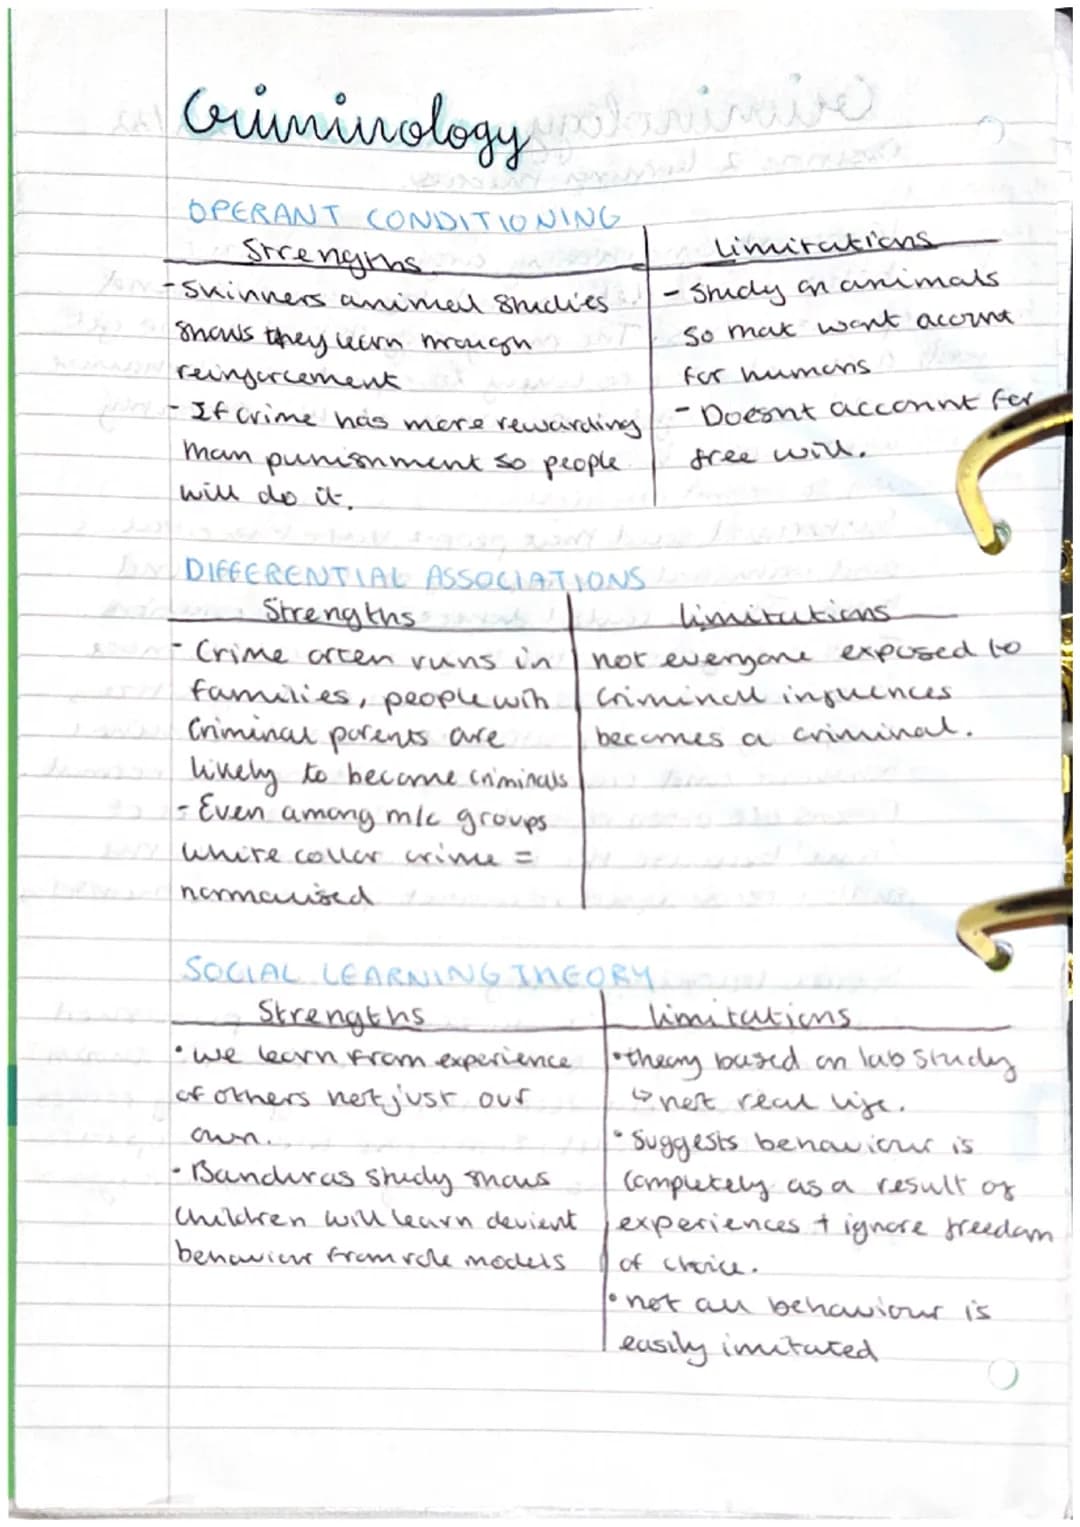 Criminology
OPERANT CONDITIONING
Strengths
- Skinners animal studies
shows they learn through
reinforcement
- If crime has more rewarding
than punishment so people
will do it.
limitations
- Study on animals
so that wont account
for humans
- Doesnt account for
free will.
DIFFERENTIAL ASSOCIATIONS
Strengths
- Crime often runs in
families, people with
Criminal parents are
likely to become criminals
- Even among m/c groups
white collar crime =
normalised
limitations
not everyone exposed to
criminal influences
becomes a criminal.
SOCIAL LEARNING THEORY
Strengths
• we learn from experience
of others not just our
own.
• Banduras study shows
Children will learn devient
behaviour from role models
limitations
• theory based on lab study
↳ not real life.
• Suggests behaviour is
completely as a result of
experiences + ignore freedom
of choice.
• not all behaviour is
easily imitated